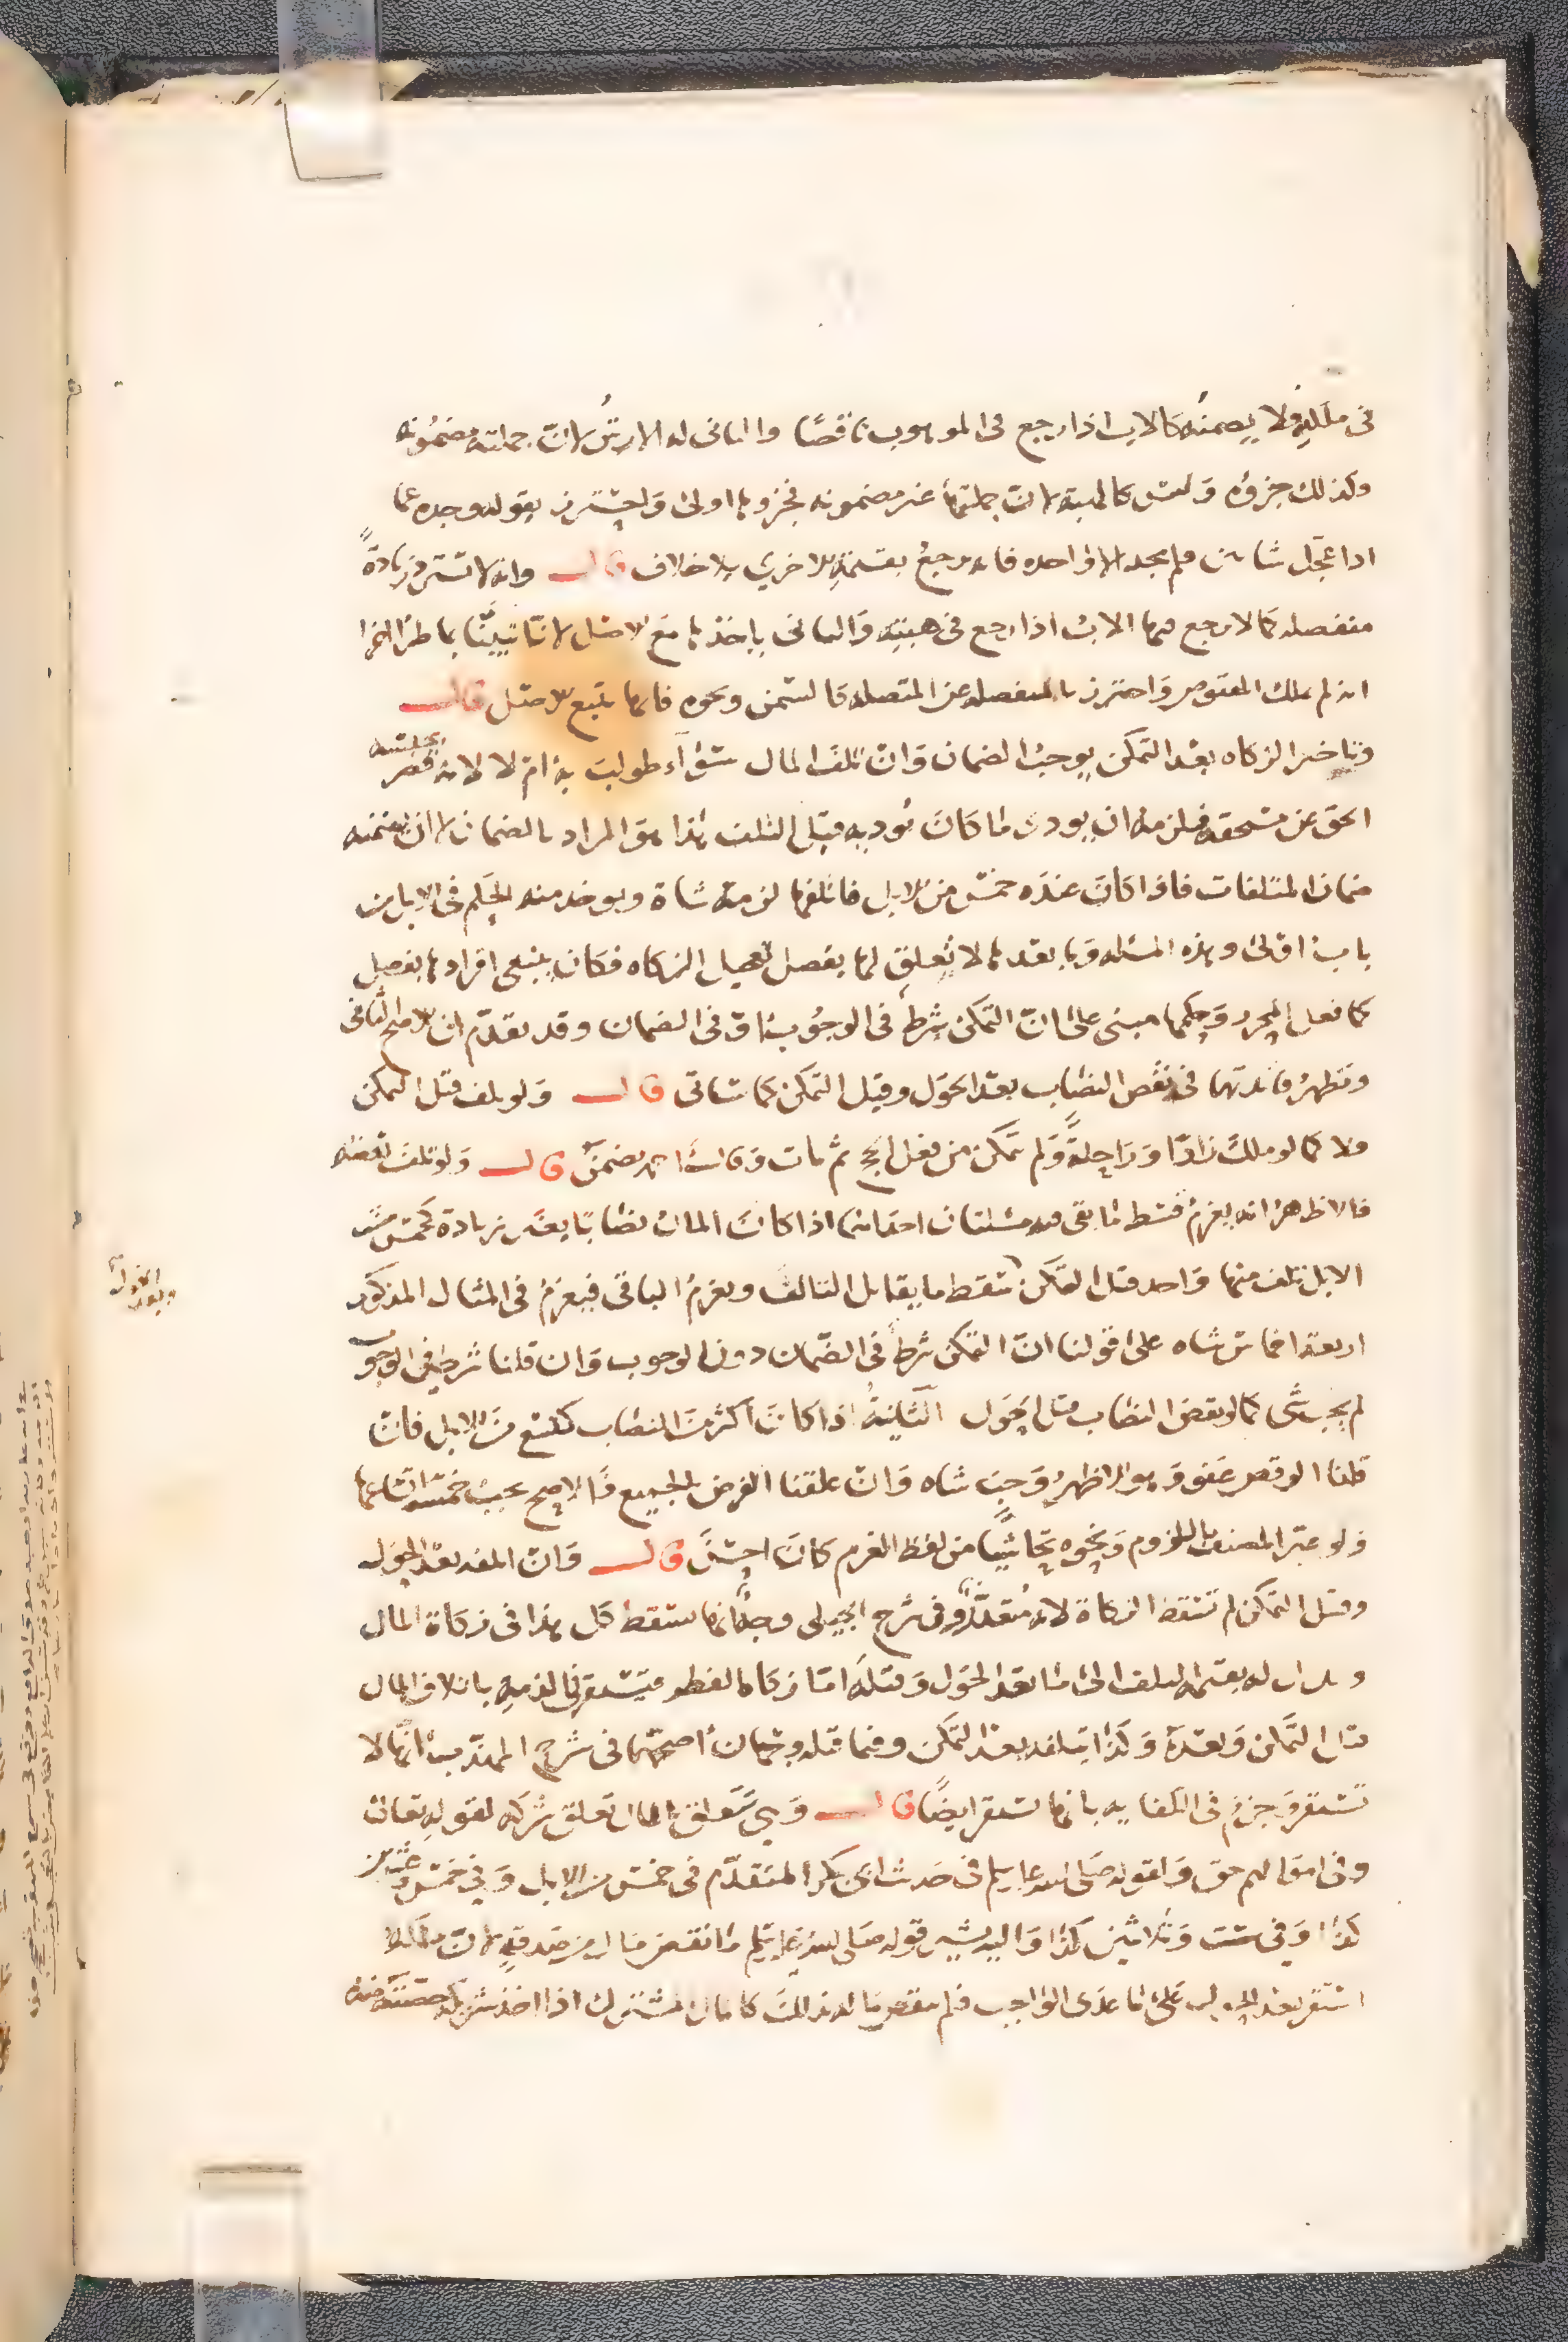 في ملكه فلا يضمنه كالاب اذا رجع في الموهوب ناقصًا والثاني له الارش لان جملته مضمونه
وكذلك جزؤه وليس كالهبة لان جملتها غير مضمونه فجزوها اولى واحترز بقوله وجده عما
اذا عجل شاتين فلم يجد الا واحده فانه يرجع بقيمة الاخرى بلا خلاف قال وانه لا يسترد زيادةً
منفصله كما لا يرجع فيها الاب اذا رجع في هبته والثاني ياخذها مع الاصل لانا تبينا بما طرا اخرا
انه لم يملك المقبوض واحترز بالمنفصله عن المتصله كالسمن ونحوه فانها تتبع الاصل قال
وتاخير الزكاه بعد التمكن يوجب الضمان وان تلف المال سواء طولب به ام لا لانه قصر بحبسه
الحق عن مستحقه فيلزمه ان يودى ما كان يوديه قبل التلف هذا هو المراد بالضمان لا ان يضمنه
ضمان المتلفات فاذا كان عنده خمس من الابل فاتلفها لزمته شاة ويوخذ منه الحكم في الاتلاف من
باب اولى وهذه المسئله وما بعدها لا تعلق لها بفصل تعجيل الزكاه فكان ينبغى افرادها بفصل
كما فعل المحرر وحكمها مبنى على ان التمكن شرط في الوجوب او في الضمان وقد تقدم ان الاصح الثاني
وتظهر فائدتهما في نقص النصاب بعد الحول وقبل التمكن كما ساتى قال ولو تلف قبل التمكن
فلا كما لو ملك زادًا وراحلةً ولم يتمكن من فعل الحج ثم مات وقال احمد يضمن قال ولو تلف بعضه
فالاظهر انه يغرم قسط ما بقى فيه مسئلتان احداهما اذا كان المال نصابًا بغير زيادة كخمس من
الابل تلف منها واحد قبل التمكن سقط ما يقابل التالف ويغرم الباقي فيغرم في المثال المذكور
اربعة اخماس شاه على قولنا ان التمكن شرط في الضمان دون الوجوب وان قلنا شرط في الوجوب
لم يجب شى كما لو نقص النصاب قبل الحول الثانية اذا كان اكثر من النصاب كتسع من الابل فان
قلنا الوقص عفو وهو الاظهر وجبت شاه وان علقنا الفرض بالجميع فالاصح يجب خمسة اتساعها
ولو عبر المصنف باللزوم ونحوه تحاشيًا من لفظ الغرم كان احسن قال وان اتلفه بعد الحول
وقبل التمكن لم تسقط الزكاة لانه متعدٍّ وفي شرح الجيلى وجه انها تسقط كل هذا في زكاة المال
فيستقر في الذمة باتلاف المال
قبل التمكن وبعده وكذا بتلفه بعد التمكن وفيما قبله وجهان اصحهما في شرح المهذب انها لا
تستقر وجزم في الكفايه بانها تستقر ايضًا قال وهي تتعلق بالمال تعلق شركه لقوله تعالى
وفي اموالهم حق ولقوله صلى الله عليه وسلم في حديث ابى بكر المتقدم في خمس من الابل وفي خمس وعشرين
كذا وفي ست وثلاثين كذا واليه يشير قوله صلى الله عليه وسلم ما نقص مال من صدقه لان ملكه
استقر بعد الحول على ما عدى الواجب فلم ينقص ماله كالمال المشترك اذا اخذ شريكه حصته منه